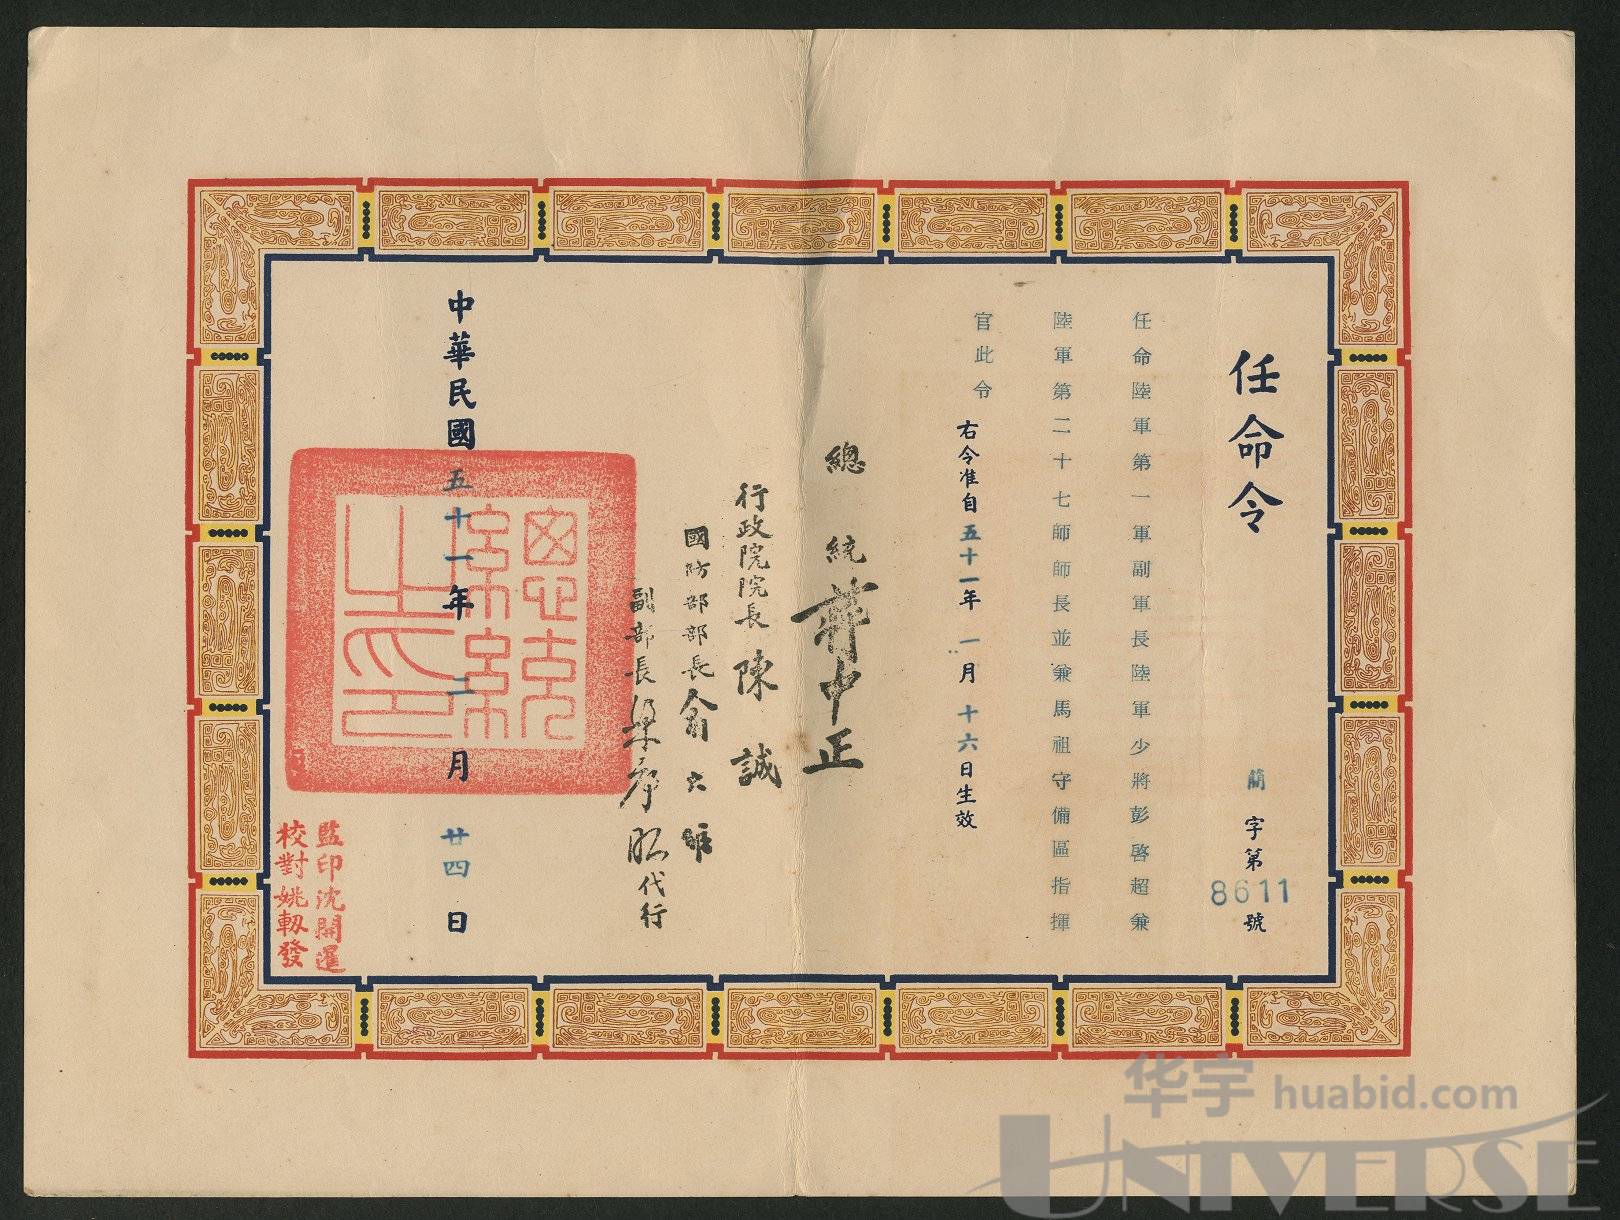 任命令
簡字第8611號
任命陸軍第一軍副軍長陸軍少將彭啓超兼
陸軍第二十七師師長並兼馬祖守備區指揮
官此令
右令准自五十一年一月十六日生效
總統蔣中正
行政院院長陳誠
國防部部長俞大維
副部長梁序昭代行
中華民國五十一年二月廿四日
總統之印
監印沈開暹
校對姚軔發
华宇 huabid.com
UNIVERSE